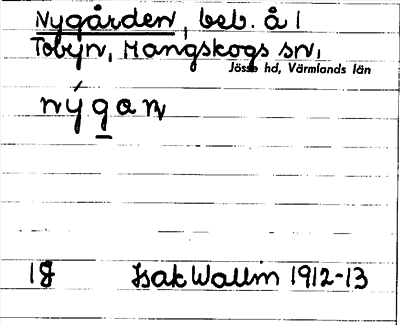 Nygården, beb. å 1
Tobyn, Mangskogs sn,
Jösse hd, Värmlands län
nýgan
18 Isak Wallin 1912-13